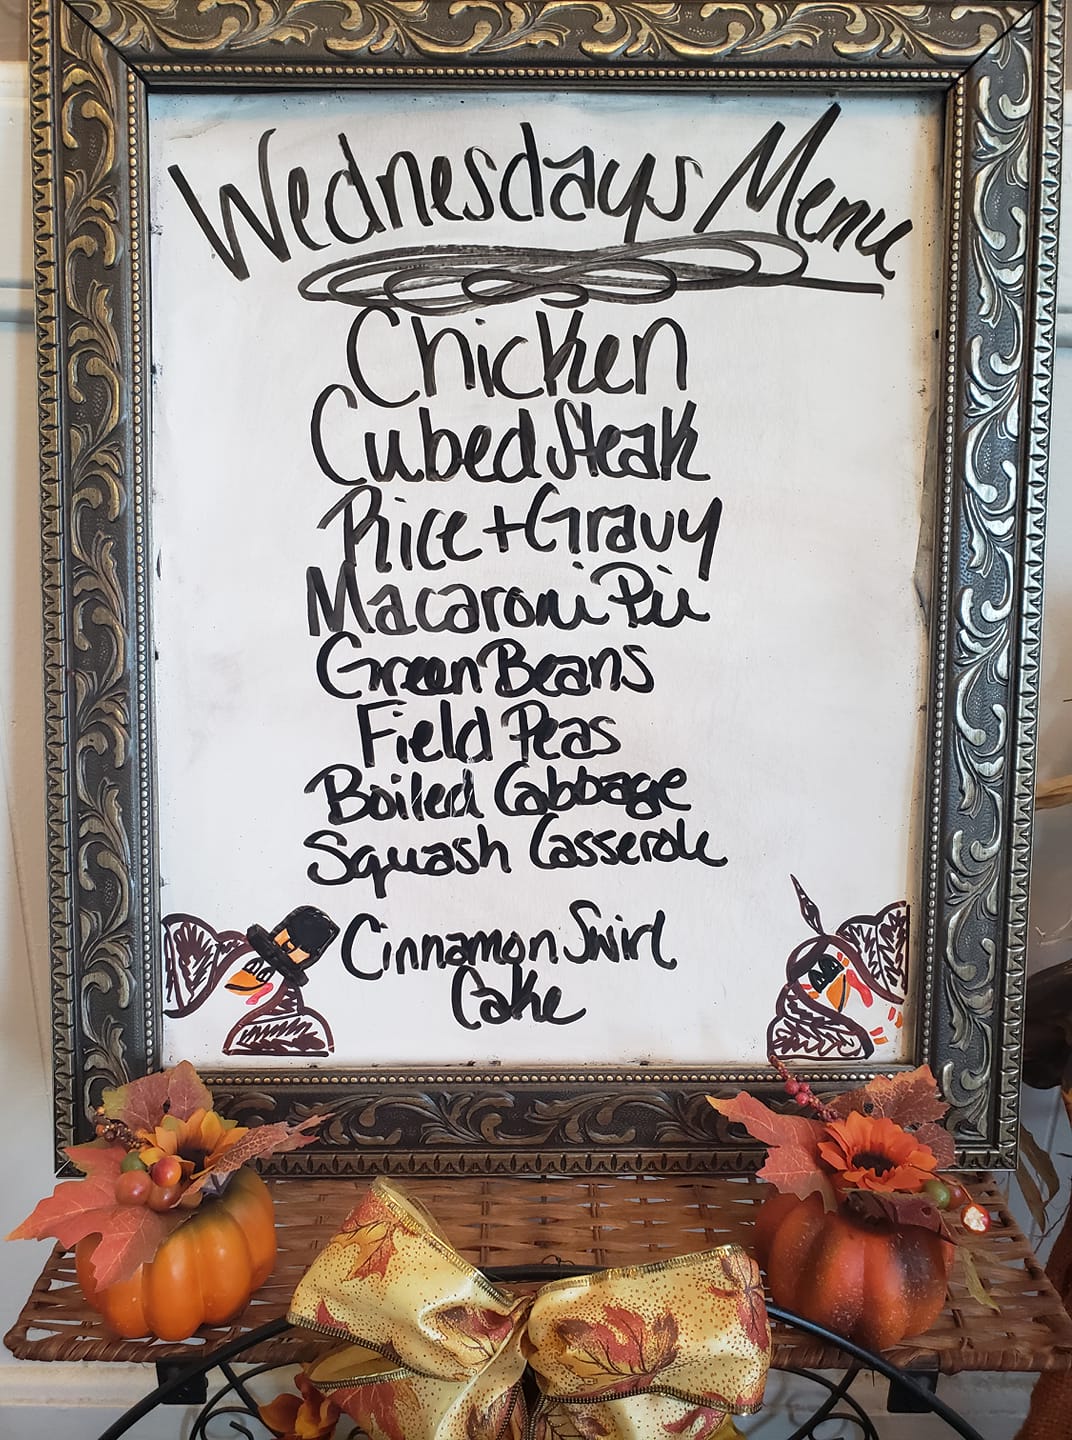 Wednesdays Menu
Chicken
Cubed Steak
Rice + Gravy
Macaroni Pie
Green Beans
Field Peas
Boiled Cabbage
Squash Casserole
Cinnamon Swirl
Cake